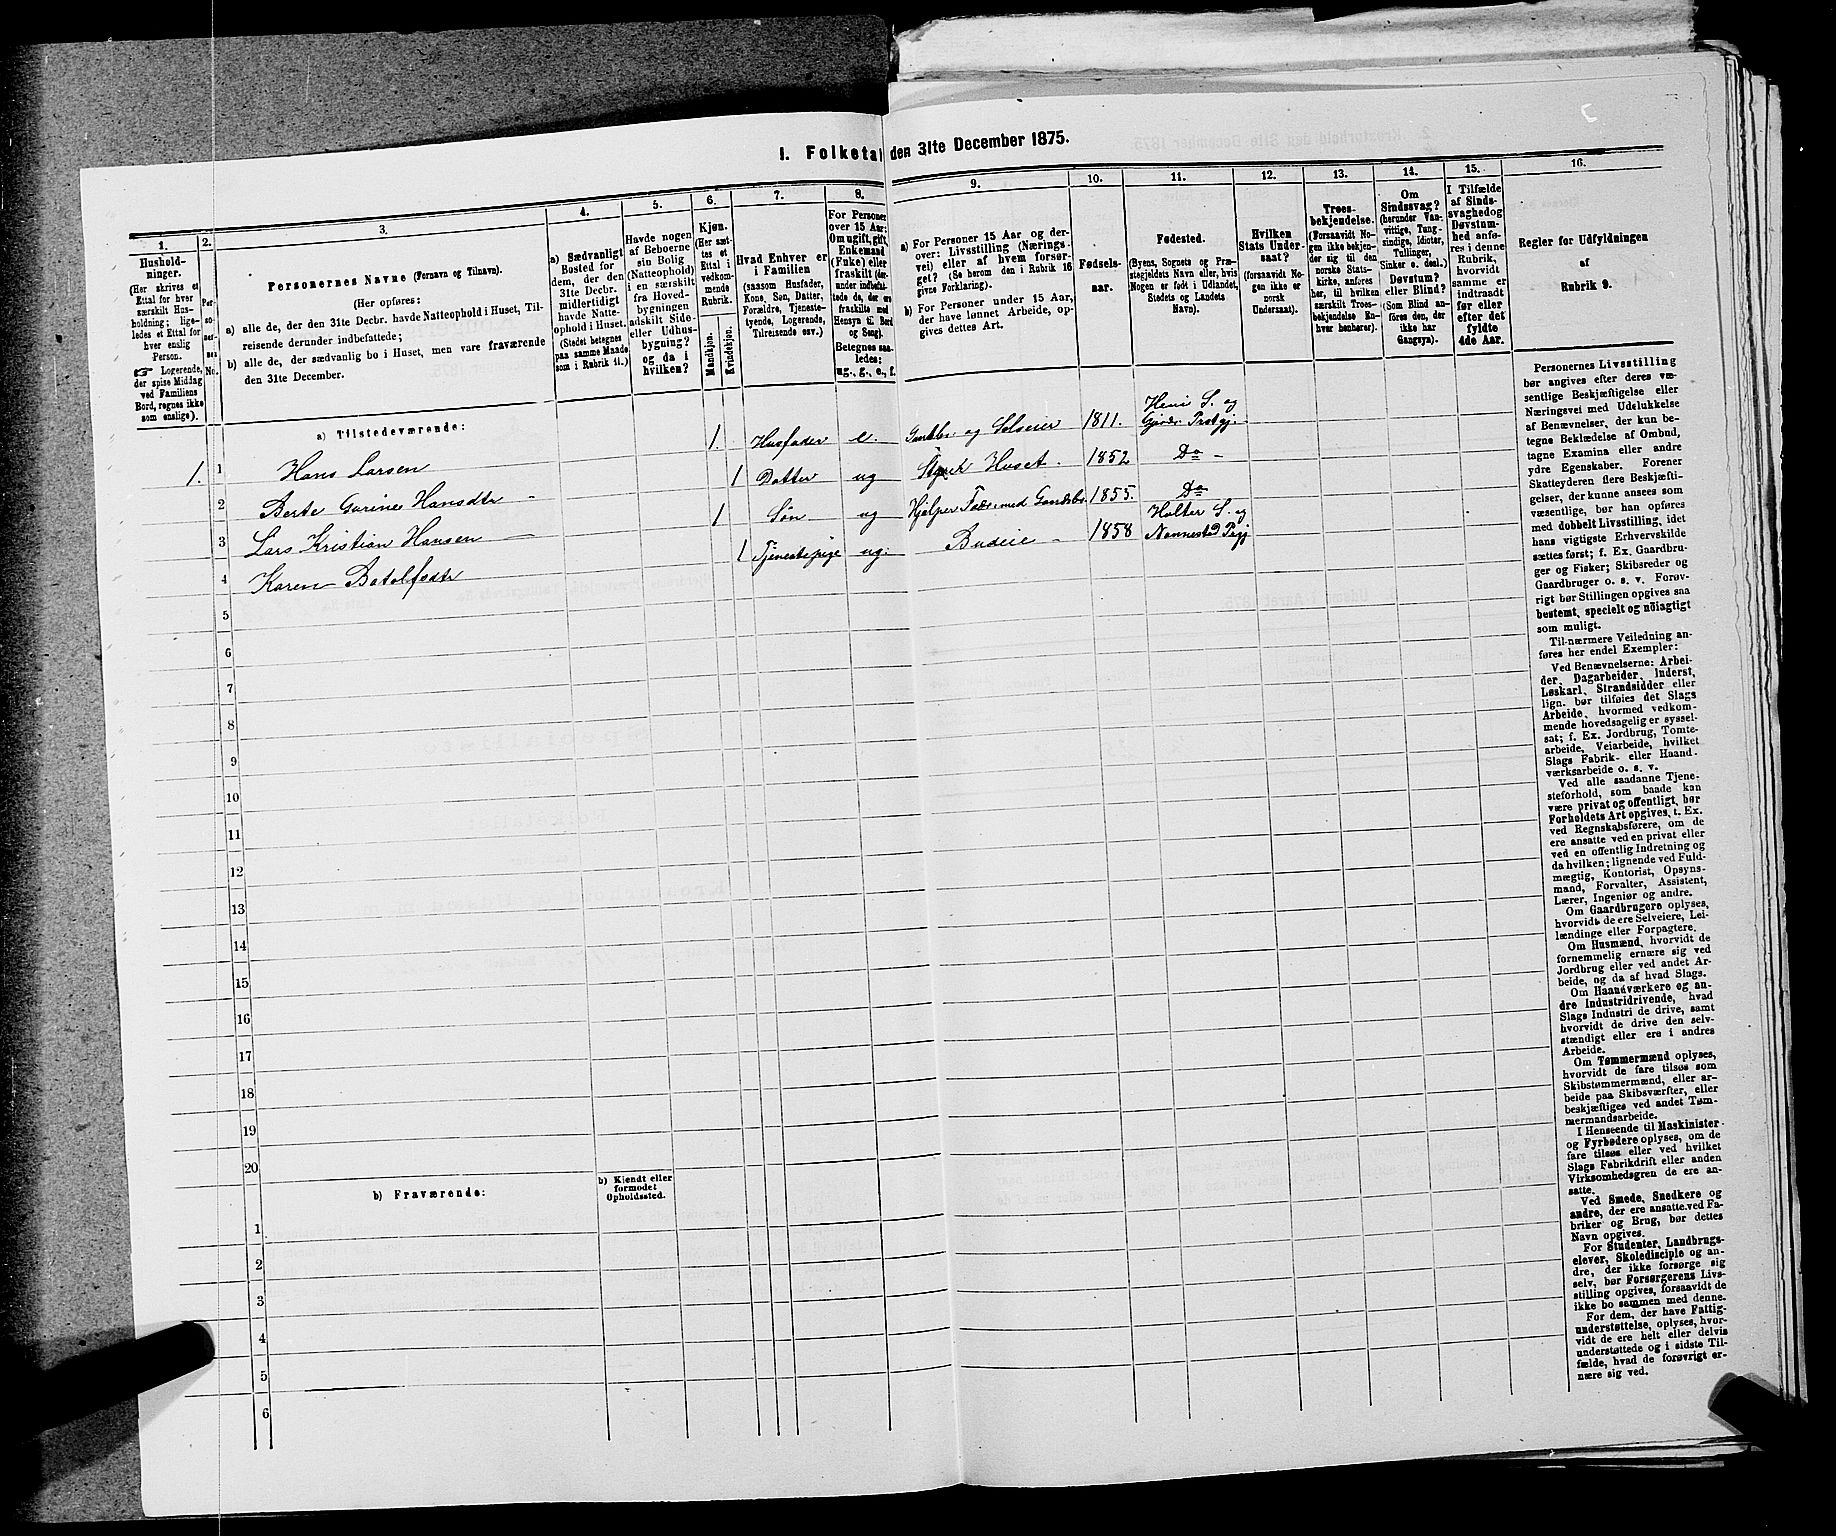 I. Folketal den 31te December 1875.
1. 2. 3. 4. 5. 6. 7. 8. 9. 10. 11. 12. 13. 14. 15. 16.
Hushold-
ninger.
(Her skrives et
Ettal for hver
særskilt Hus-
holdning; lige-
ledes et Ettal for
hver enslig
Person.
☞ Logerende,
der spise Middag
ved Familiens
Bord, regnes ikke
som enslige).
Per-
so-
ner-
nes
No.
Personernes Navne (Fornavn og Tilnavn).
(Her opføres:
a) alle de, der den 31te Decbr. havde Natteophold i Huset, Til-
reisende derunder indbefattede;
b) alle de, der sædvanlig bo i Huset, men vare fraværende
den 31te December.
a) Sædvanligt
Bosted for
dem, der den
31te Decbr.
midlertidigt
havde Natte-
ophold i Huset.
(Stedet betegnes
paa samme Maade
som i Rubrik 11.)
Havde nogen
af Beboerne
sin Bolig
(Natteophold)
i en særskilt
fra Hoved-
bygningen
adskilt Side-
eller Udhus-
bygning?
og da i
hvilken?
Kjøn.
(Her sæt-
tes et
Ettal i
vedkom-
mende
Rubrik.
Mandkjøn.
Kvindekjøn.
Hvad Enhver er
i Familien
(saasom Husfader,
Kone, Søn, Datter,
Forældre, Tjeneste-
tyende, Logerende,
Tilreisende osv.)
For Personer
over 15 Aar:
Om ugift, gift,
Enkemand
(Enke) eller
fraskilt (der-
under indbefat-
tede de, der ere
fraskilte med
Hensyn til Bord
og Seng).
Betegnes saa-
ledes:
ug., g., e., f.
a) For Personer 15 Aar og der-
over: Livsstilling (Nærings-
vei) eller af hvem forsør-
get? (Se herom den i Rubrik 16
givne Forklaring).
b) For Personer under 15 Aar,
der have lønnet Arbeide, op-
gives dettes Art.
Fødsels-
aar.
Fødested.
(Byens, Sognets og Præ-
stegjeldets Navn eller, hvis
Nogen er født i Udlandet,
Stedets og Landets
Navn).
Hvilken
Stats Under-
saat?
(forsaavidt No-
gen ikke er
norsk
Undersaat).
Troes-
bekjendelse.
(Forsaavidt No-
gen ikke bekjen-
der sig til den
norske Stats-
kirke, anføres
her, til hvilken
særskilt Troes-
bekjendelse En-
hver henhører).
Om
Sindssvag?
(herunder Van-
vittige, Tung-
sindige, Idioter,
Tullinger,
Sinker o. desl.)
Døvstum?
eller Blind?
(Som Blind an-
føres den, der
ikke har
Gangsyn).
I Tilfælde
af Sinds-
svaghed og
Døvstum-
hed anfø-
res i denne
Rubrik,
hvorvidt
samme er
indtraadt
før eller
efter det
fyldte
4de Aar.
Regler for Udfyldningen
af
Rubrik 9.
a) Tilstedeværende:
1. 1 Hans Larsen 1. Husfader e. Gaardbr. og Selveier 1811. Heni S. og Gjerdr. Prstgj.
2 Berte Gurine Hansdtr 1 Datter ug Styrer Huset. 1852 Do
3 Lars Kristian Hansen 1 Søn ug Hjelper Fader med Gaardsbr. 1855. Do
4 Karen Botolfsdtr 1 Tjenestepige ug. Budeie 1858 Holter S. og Nannestad Pgj
5
6
7
8
9
10
11
12
13
14
15
16
17
18
19
20
b) Fraværende:
b) Kjendt eller
formodet
Opholdssted.
1
2
3
4
5
6
Personernes Livsstilling
bør angives efter deres væ-
sentlige Beskjæftigelse eller
Næringsvei med Udelukkelse
af Benævnelser, der kun be-
tegne Beklædelse af Ombud,
tagne Examina eller andre
ydre Egenskaber. Forener
Skatteyderen flere Beskjæfti-
gelser, der kunne ansees som
væsentlige, bør han opføres
med dobbelt Livsstilling, idet
hans vigtigste Erhvervskilde
sættes først; f. Ex. Gaardbru-
ger og Fisker; Skibsreder og
Gaardbruger o. s. v. Forøv-
rigt bør Stillingen opgives saa
bestemt, specielt og nøiagtigt
som muligt.
Til nærmere Veiledning an-
føres her endel Exempler:
Ved Benævnelserne: Arbei-
der, Dagarbeider, Inderst,
Løskarl, Strandsidder eller
lign. bør tilføies det Slags
Arbeide, hvormed vedkom-
mende hovedsagelig er syssel-
sat; f. Ex. Jordbrug, Tomte-
arbeide, Veiarbeide, hvilket
Slags Fabrik- eller Haand-
værksarbeide o. s. v.
Ved alle saadanne Tjene-
steforhold, som baade kan
være privat og offentligt, bør
Forholdets Art opgives, t. Ex.
ved Regnskabsførere, om de
ere ansatte ved en privat eller
ved en offentlig Indretning og
da hvilken; lignende ved Fuld-
mægtig, Kontorist, Opsyns-
mand, Forvalter, Assistent,
Lærer, Ingeniør og andre.
Om Gaardbrugere oplyses,
hvorvidt de ere Selveiere, Lei-
lændinge eller Forpagtere.
Om Husmænd, hvorvidt de
fornemmelig ernære sig ved
Jordbrug eller ved andet Ar-
beide, og da af hvad Slags.
Om Haandværkere og an-
dre Industridrivende, hvad
Slags Industri de drive, samt
hvorvidt de drive den selv-
stændigt eller ere i andres
Arbeide.
Om Tømmermænd oplyses,
hvorvidt de fare tilsøs som
Skibstømmermænd, eller ar-
beide paa Skibsværfter, eller
beskjæftiges ved andet Tøm-
mermandsarbeide.
I Henseende til Maskinister
og Fyrbødere oplyses, om de
fare tilsøs eller ved hvilket
Slags Fabrikdrift eller anden
Virksomhedsgren de ere an-
satte.
Ved Smede, Snedkere og
andre, der ere ansatte ved Fa-
briker og Brug, bør dettes
Navn opgives.
For Studenter, Landbrugs-
elever, Skoledisciple og an-
dre, der ikke forsørge sig
selv, bør Forsørgerens Livs-
stilling opgives, forsaavidt de
ikke bo sammen med denne.
For dem, der have Fattig-
understøttelse, oplyses, hvor-
vidt de ere helt eller delvis
understøttede og i sidste Til-
fælde, hvad de forøvrigt er-
nære sig ved.